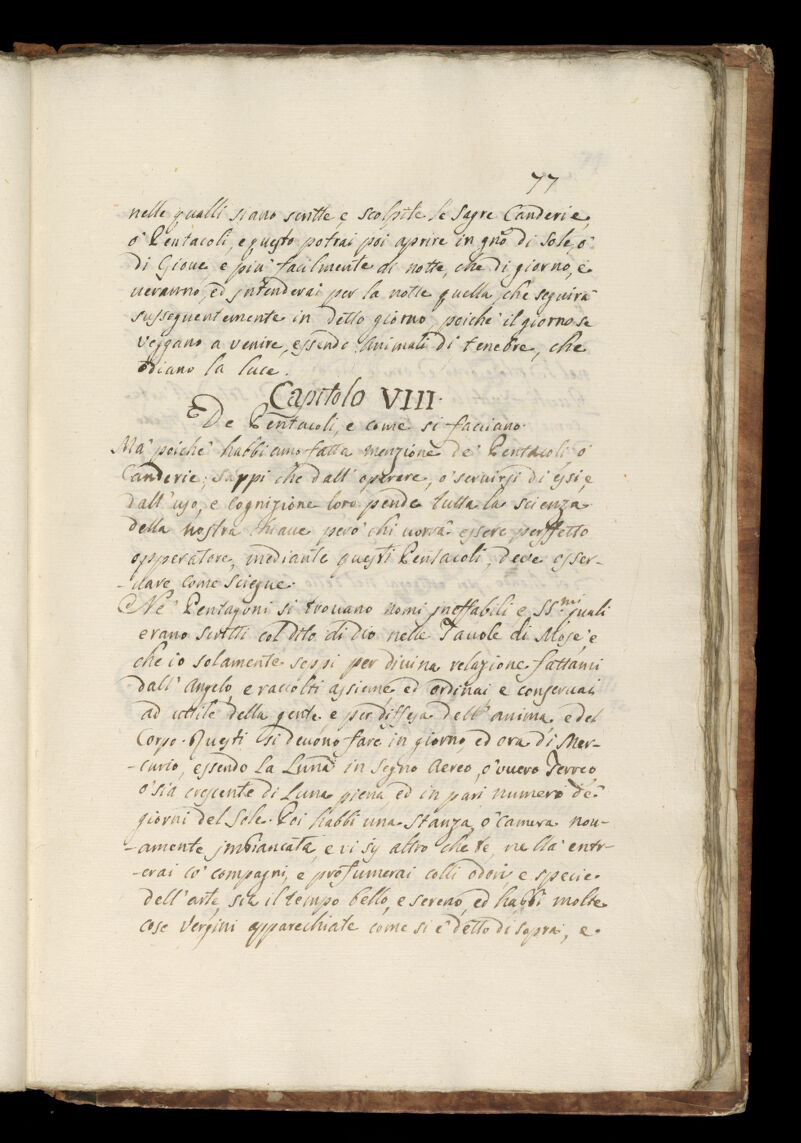 77
nelle qualli siano scritte e scolpite le sagre Canderie,
o' Pentacoli, e questo potrai poi aprire in gno di Sole, o'
di Gioue e piu' facilmente di notte, che di giorno, e
ueranno, ed intenderai per la notte quella, che seguirà
susseguentemente in detto giorno, poiche il giorno se
veggano a venire, essendo Animali di tenebre, che
odiano la luce.
Capitolo VIII.
De Pentacoli, e come si facciano.
Mà poiche habbiamo fatta menzione de' Pentacoli o'
Canderie; sappi che dall' operare, o' seruirsi di essi, e
dall' uso, e Cognizione loro pende tutta la scienza
della nostra chiaue però chi uorrà essere perffetto
opperatore, mediante questi Pentacoli, deve osser-
-uare come sciegue.
Ne' Pentagoni si trouano nomi ineffabili e SS.mi quali
erano scritti col dito di Dio nelle Tauole di Mosè, e
che io solamente seppi per diuina relazione fattami
dall' Angelo, e raccolti assieme ed ordinai e conseruai
ad uttile della gente e per diffesa dell' anima e del
Corpo. Questi si deuono fare in giorno ed ora di Mer-
-curio, essendo La Luna in Segno Aereo, o' uuero Terreo,
o' sia crescente di Luna piena, ed in pari numero de'
giorni del Sole. Poi habbi una stanza, o' camera nou-
-amente imbiancata, e ui sij altro che te, ne llà entr-
-erai co' compagni, e profumerai colli odori e specie
dell' arte, sia il tempo bello, e sereno, ed habbi molte
cose Vergini apparechiate come si è detto di sopra, e